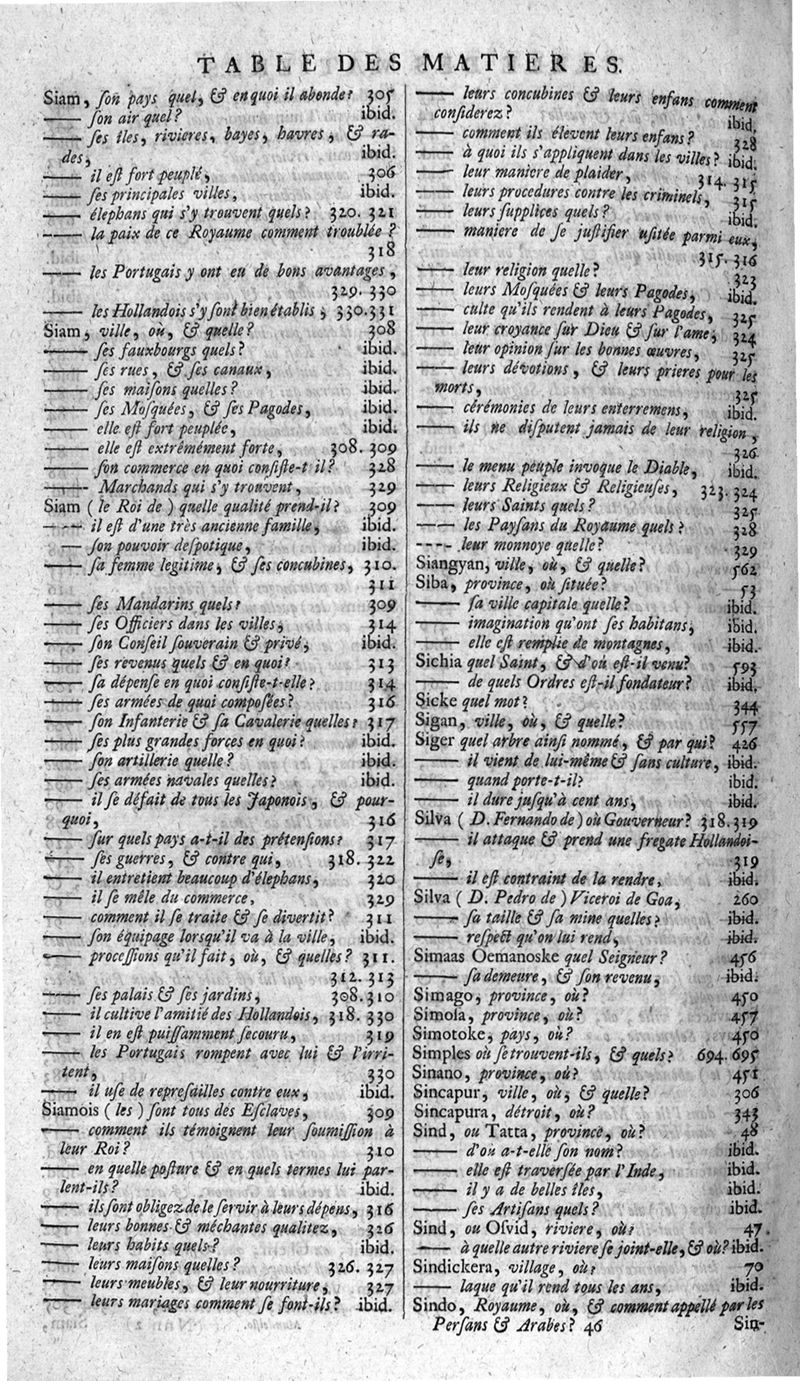 TABLE DES MATIERES.
Siam, ſon pays quel, & en quoi il abonde? 305
—— ſon air quel? ibid.
—— ſes îles, rivieres, bayes, havres, & ra-
des, ibid.
—— il eſt fort peuplé, 306
—— ſes principales villes, ibid.
—— élephans qui s'y trouvent quels? 320. 321
—— la paix de ce Royaume comment troublée?
318
—— les Portugais y ont eu de bons avantages,
329. 330
—— les Hollandois s'y ſont bien établis, 330.331
Siam, ville, où, & quelle? 308
—— ſes fauxbourgs quels? ibid.
—— ſes rues, & ſes canaux, ibid.
—— ſes maiſons quelles? ibid.
—— ſes Moſquées, & ſes Pagodes, ibid.
—— elle eſt fort peuplée, ibid.
—— elle eſt extrémément forte, 308. 309
—— ſon commerce en quoi conſiſte-t il? 328
—— Marchands qui s'y trouvent, 329
Siam (le Roi de) quelle qualité prend-il? 309
—— il eſt d'une très ancienne famille, ibid.
—— ſon pouvoir deſpotique, ibid.
—— ſa femme legitime, & ſes concubines, 310.
311
—— ſes Mandarins quels? 309
—— ſes Officiers dans les villes, 314
—— ſon Conſeil ſouverain & privé, ibid.
—— ſes revenus quels & en quoi? 313
—— ſa dépenſe en quoi conſiſte-t-elle? 314
—— ſes armées de quoi compoſées? 316
—— ſon Infanterie & ſa Cavalerie quelles? 317
—— ſes plus grandes forces en quoi? ibid.
—— ſon artillerie quelle? ibid.
—— ſes armées navales quelles? ibid.
—— il ſe défait de tous les Japonois, & pour-
quoi, 316
—— ſur quels pays a-t-il des prétenſions? 317
—— ſes guerres, & contre qui, 318. 322
—— il entretient beaucoup d'élephans, 320
—— il ſe mêle du commerce, 329
—— comment il ſe traite & ſe divertit? 311
—— ſon équipage lorsqu'il va à la ville, ibid.
—— proceſſions qu'il fait, où, & quelles? 311.
312. 313
—— ſes palais & ſes jardins, 308.310
—— il cultive l'amitié des Hollandois, 318. 330
—— il en eſt puiſſamment ſecouru, 319
—— les Portugais rompent avec lui & l'irri-
tent, 330
—— il uſe de repreſailles contre eux, ibid.
Siamois (les) ſont tous des Eſclaves, 309
—— comment ils témoignent leur ſoumiſſion à
leur Roi? 310
—— en quelle poſture & en quels termes lui par-
lent-ils? ibid.
—— ils ſont obligez de le ſervir à leurs dépens, 316
—— leurs bonnes & méchantes qualitez, 326
—— leurs habits quels? ibid.
—— leurs maiſons quelles? 326. 327
—— leurs meubles, & leur nourriture, 327
—— leurs mariages comment ſe font-ils? ibid.
—— leurs concubines & leurs enfans comment
conſiderez? ibid.
—— comment ils élevent leurs enfans? 328
—— à quoi ils s'appliquent dans les villes? ibid.
—— leur maniere de plaider, 314. 315
—— leurs procedures contre les criminels, 315
—— leurs ſupplices quels? ibid.
—— maniere de ſe juſtifier uſitée parmi eux,
315. 316
—— leur religion quelle? 323
—— leurs Moſquées & leurs Pagodes, ibid.
—— culte qu'ils rendent à leurs Pagodes, 325
—— leur croyance ſur Dieu & ſur l'ame, 324
—— leur opinion ſur les bonnes œuvres, 325
—— leurs dévotions, & leurs prieres pour les
morts, 325
—— cérémonies de leurs enterremens, ibid.
—— ils ne diſputent jamais de leur religion,
326
—— le menu peuple invoque le Diable, ibid.
—— leurs Religieux & Religieuſes, 323. 324
—— leurs Saints quels? 325
—— les Payſans du Royaume quels? 328
---- leur monnoye quelle? 329
Siangyan, ville, où, & quelle? 562
Siba, province, où ſituée? 53
—— ſa ville capitale quelle? ibid.
—— imagination qu'ont ſes habitans, ibid.
—— elle eſt remplie de montagnes, ibid.
Sichia quel Saint, & d'où eſt-il venu? 593
—— de quels Ordres eſt-il fondateur? ibid.
Sicke quel mot? 344
Sigan, ville, où, & quelle? 557
Siger quel arbre ainſi nommé, & par qui? 426
—— il vient de lui-même & ſans culture, ibid.
—— quand porte-t-il? ibid.
—— il dure juſqu'à cent ans, ibid.
Silva (D. Fernando de) où Gouverneur? 318.319
—— il attaque & prend une fregate Hollandoi-
ſe, 319
—— il eſt contraint de la rendre, ibid.
Silva (D. Pedro de) Viceroi de Goa, 260
—— ſa taille & ſa mine quelles? ibid.
—— reſpect qu'on lui rend, ibid.
Simaas Oemanoske quel Seigneur? 456
—— ſa demeure, & ſon revenu, ibid.
Simago, province, où? 450
Simola, province, où? 457
Simotoke, pays, où? 450
Simples où ſe trouvent-ils, & quels? 694. 695
Sinano, province, où? 451
Sincapur, ville, où, & quelle? 306
Sincapura, détroit, où? 343
Sind, ou Tatta, province, où? 48
—— d'où a-t-elle ſon nom? ibid.
—— elle eſt traverſée par l'Inde, ibid.
—— il y a de belles îles, ibid.
—— ſes Artiſans quels? ibid.
Sind, ou Oſvid, riviere, où? 47.
—— à quelle autre riviere ſe joint-elle, & où? ibid.
Sindickera, village, où? 70
—— laque qu'il rend tous les ans, ibid.
Sindo, Royaume, où, & comment appellé par les
Perſans & Arabes? 46
Sin-